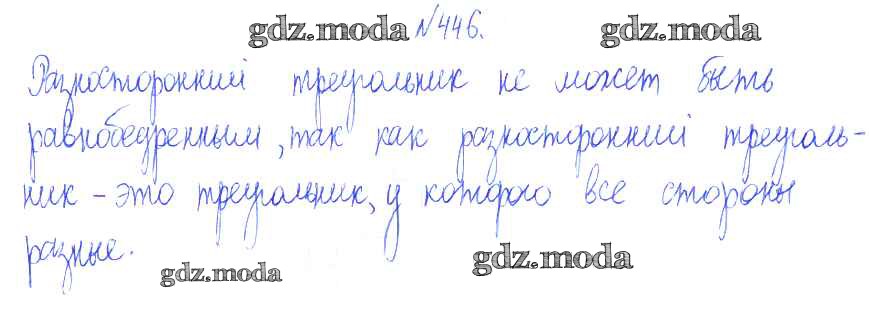 gdz.moda №446. gdz.moda
Разносторонний треугольник не может быть
равнобедренным, так как разносторонний треуголь-
ник - это треугольник, у которого все стороны
разные.
gdz.moda gdz.moda